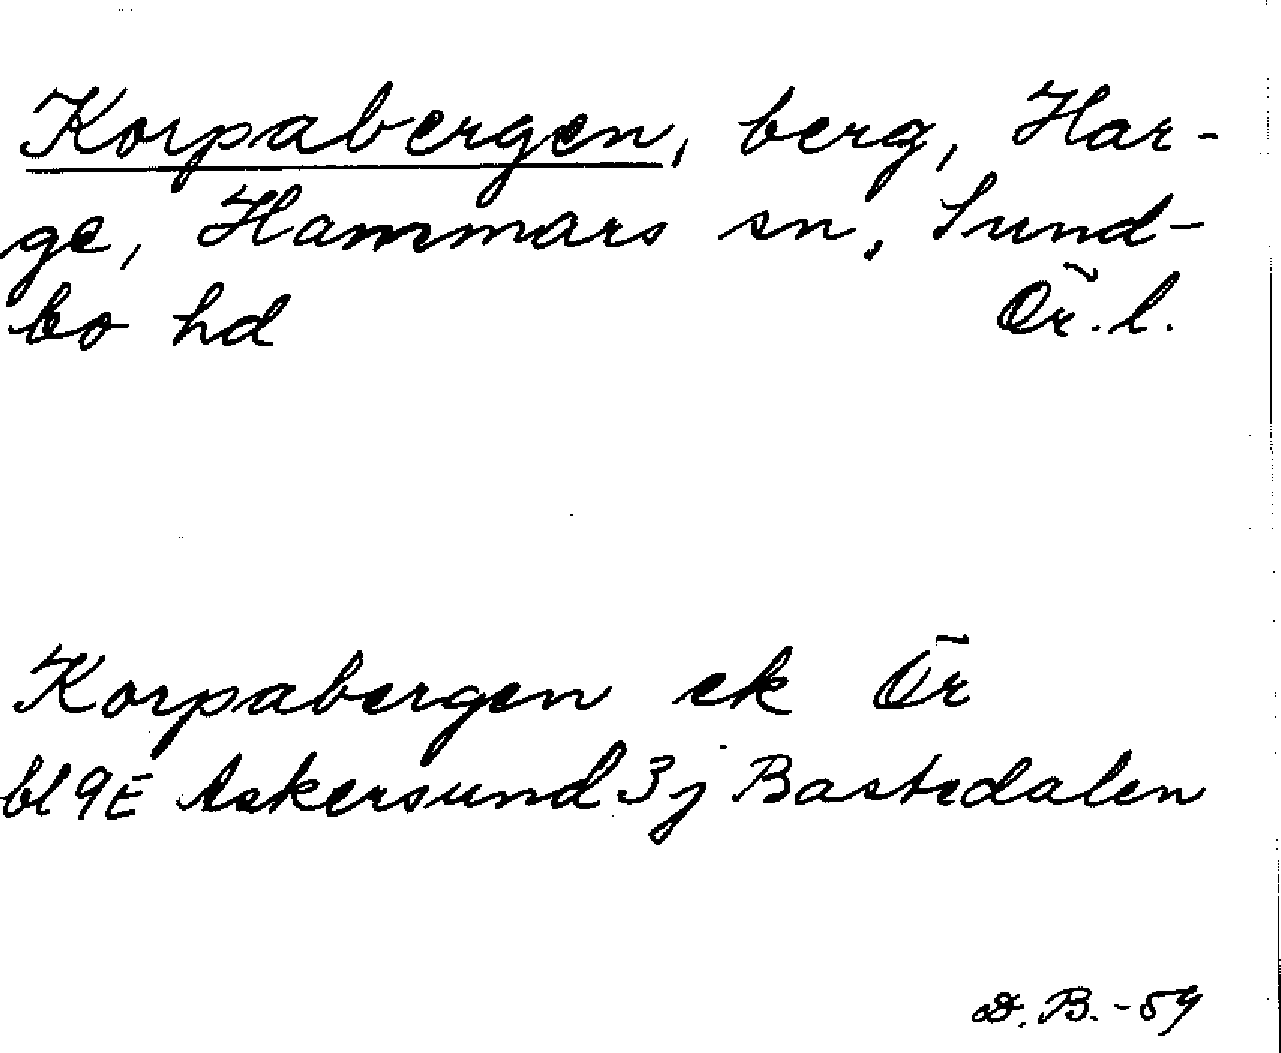 Korpabergen, berg, Har-
ge, Hammars sn, Sund-
bo hd Ör. l.
Korpabergen ek Ör
bl 9E Askersund 3j Bastedalen
D. B. -59